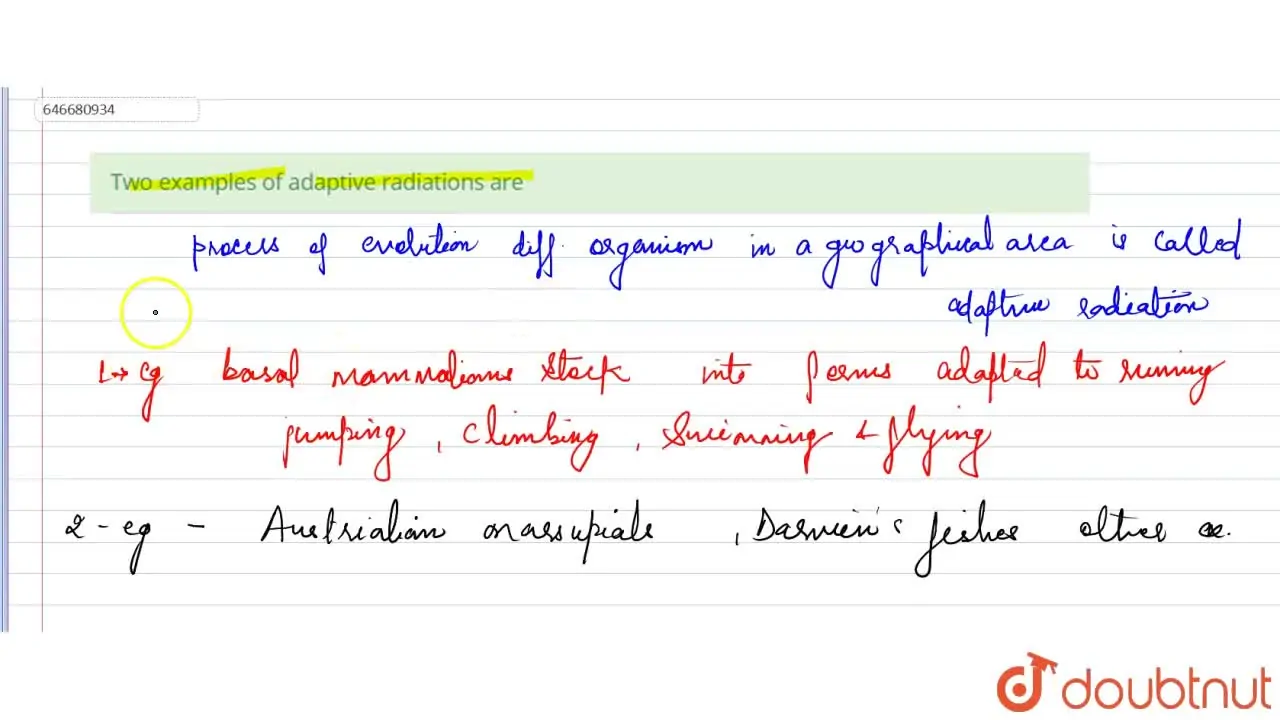 646680934
Two examples of adaptive radiations are
process of evolution diff. organism in a geographical area is called
adaptive radiation
1→ eg basal mammalians stock into forms adapted to running
jumping, climbing, Swimming & flying
2 - eg - Austrialian marsupials, Darwin's fishes other ex.
doubtnut